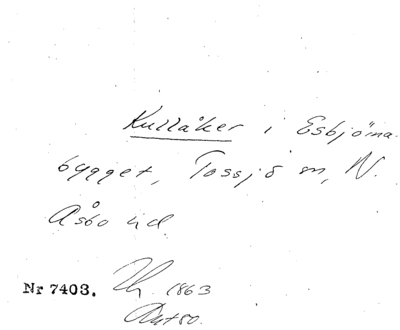 Kullåker i Esbjörna-
bygget, Tossjö m, N.
Åsbo hd.
Nr 7403. 1863